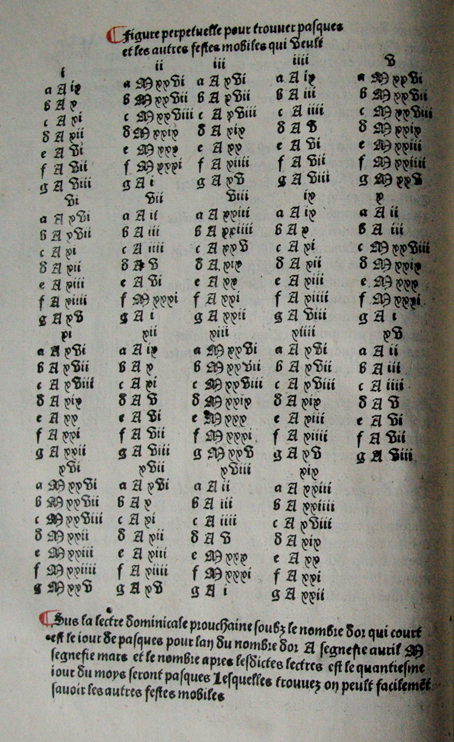 Figure perpetuelle pour trouver pasques
et les autres festes mobiles qui veult
i ii iii iiii v
a A ix a M xxvi a A xvi a A ix a M xxvi
b A x b M xxvii b A xvii b A iii b M xxvii
c A xi c M xxviii c A xviii c A iiii c M xxviii
d A xii d M xxix d A xix d A v d M xxix
e A vi e M xxx e A xx e A vi e M xxiii
f A vii f M xxxi f A xiiii f A vii f M xxiiii
g A viii g A i g A xv g A viii g M xxv
vi vii viii ix x
a A xvi a A ii a A xxiii a A ix a A ii
b A xvii b A iii b A xxiiii b A x b A iii
c A xi c A iiii c A xxv c A xi c M xxviii
d A xii d A v d A xix d A xii d M xxix
e A xiii e A vi e A xx e A xiii e M xxx
f A xiiii f M xxxi f A xxi f A xiiii f M xxxi
g A xv g A i g A xxii g A viii g A i
xi xii xiii xiiii xv
a A xvi a A ix a M xxvi a A xvi a A ii
b A xvii b A x b M xxvii b A xvii b A iii
c A xviii c A xi c M xxviii c A xviii c A iiii
d A xix d A v d M xxix d A xix d A v
e A xx e A vi e M xxx e A xiii e A vi
f A xxi f A vii f M xxxi f A xiiii f A vii
g A xxii g A viii g M xxv g A xv g A viii
xvi xvii xviii xix
a M xxvi a A xvi a A ii a A xxiii
b M xxvii b A x b A iii b A xxiiii
c M xxviii c A xi c A iiii c A xviii
d M xxii d A xii d A v d A xix
e M xxiii e A xiii e M xxx e A xx
f M xxiiii f A xiiii f M xxxi f A xxi
g M xxv g A xv g A i g A xxii
Sus la lectre dominicale prouchaine soubz le nombre dor qui court
est le iour de pasques pour lan du nombre dor A segnefie auril M
segnefie mars et le nombre apres lesdictes lectres est le quantiesme
iour du moys seront pasques Lesquelles trouuez on peult facilemēt
sauoir les autres festes mobiles